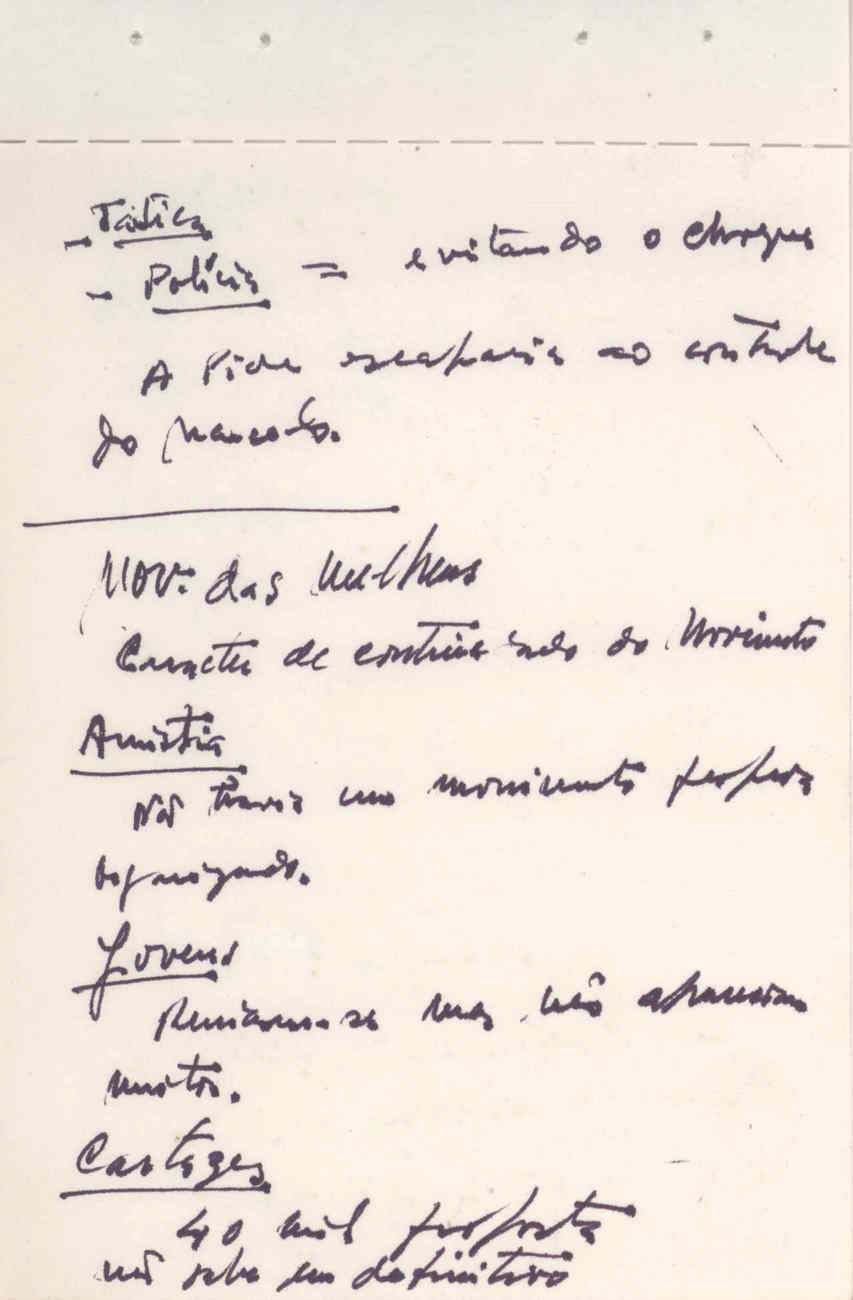 - Tática
- Polícia = evitando o choque
A Pide escaparia ao controle
do Marcelo.
Mov. das Mulheres
Caracter de do Movimento
Amnistia
Não havia um movimento
organizado.
Jovens
Reuniam-se mas não apareciam
muitos.
Cartazes
40 mil proposta
não sabe em definitivo